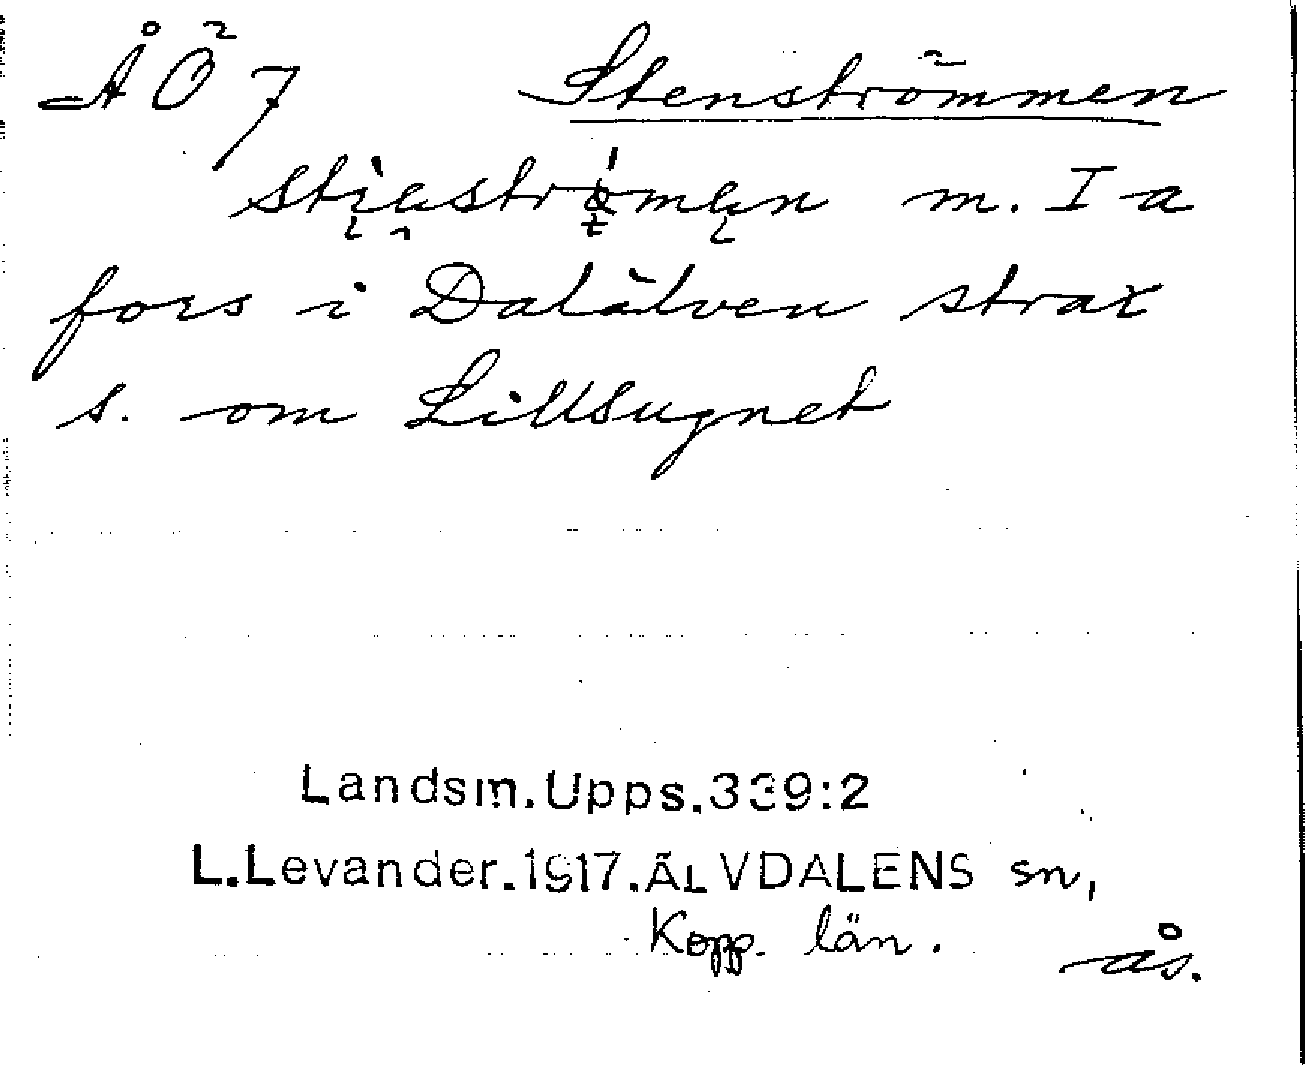 ÅÖ 7 Stenströmmen
m. I a
fors i Dalälven strax
s. om Lillsugnet
Landsm.Upps.339:2
L.Levander.1917.ÄLVDALENS sn,
Kopp. län.
ås.